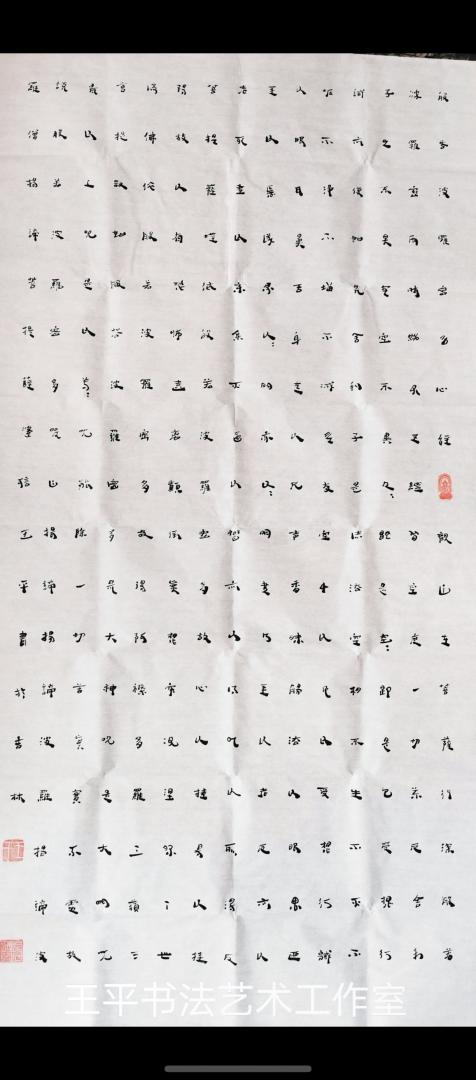 般若波羅蜜多心經觀自在菩薩行深般若
波羅蜜多時照見五蘊皆空度一切苦厄舍利
子色不異空空不異色々即是空々即是色受想行
識亦復如是舍利子是諸法空相不生不滅不
垢不淨不增不減是故空中无色无受想行識
无眼耳鼻舌身意无色聲香味觸法无眼界乃
至无意識界无々明亦无々明盡乃至无老死亦无
老死盡无苦集滅道无智亦无得以无所得故
菩提薩埵依般若波羅蜜多故心无罣礙无罣
礙故无有恐怖遠離顛倒夢想究竟涅槃三世
諸佛依般若波羅蜜多故得阿耨多羅三藐三
菩提故知般若波羅蜜多是大神咒是大明咒
是无上咒是无等々咒能除一切苦真實不虛故
說般若波羅蜜多咒曰揭諦揭諦波羅揭諦波
羅僧揭諦菩提薩婆訶王平書於吉林
王平书法艺术工作室